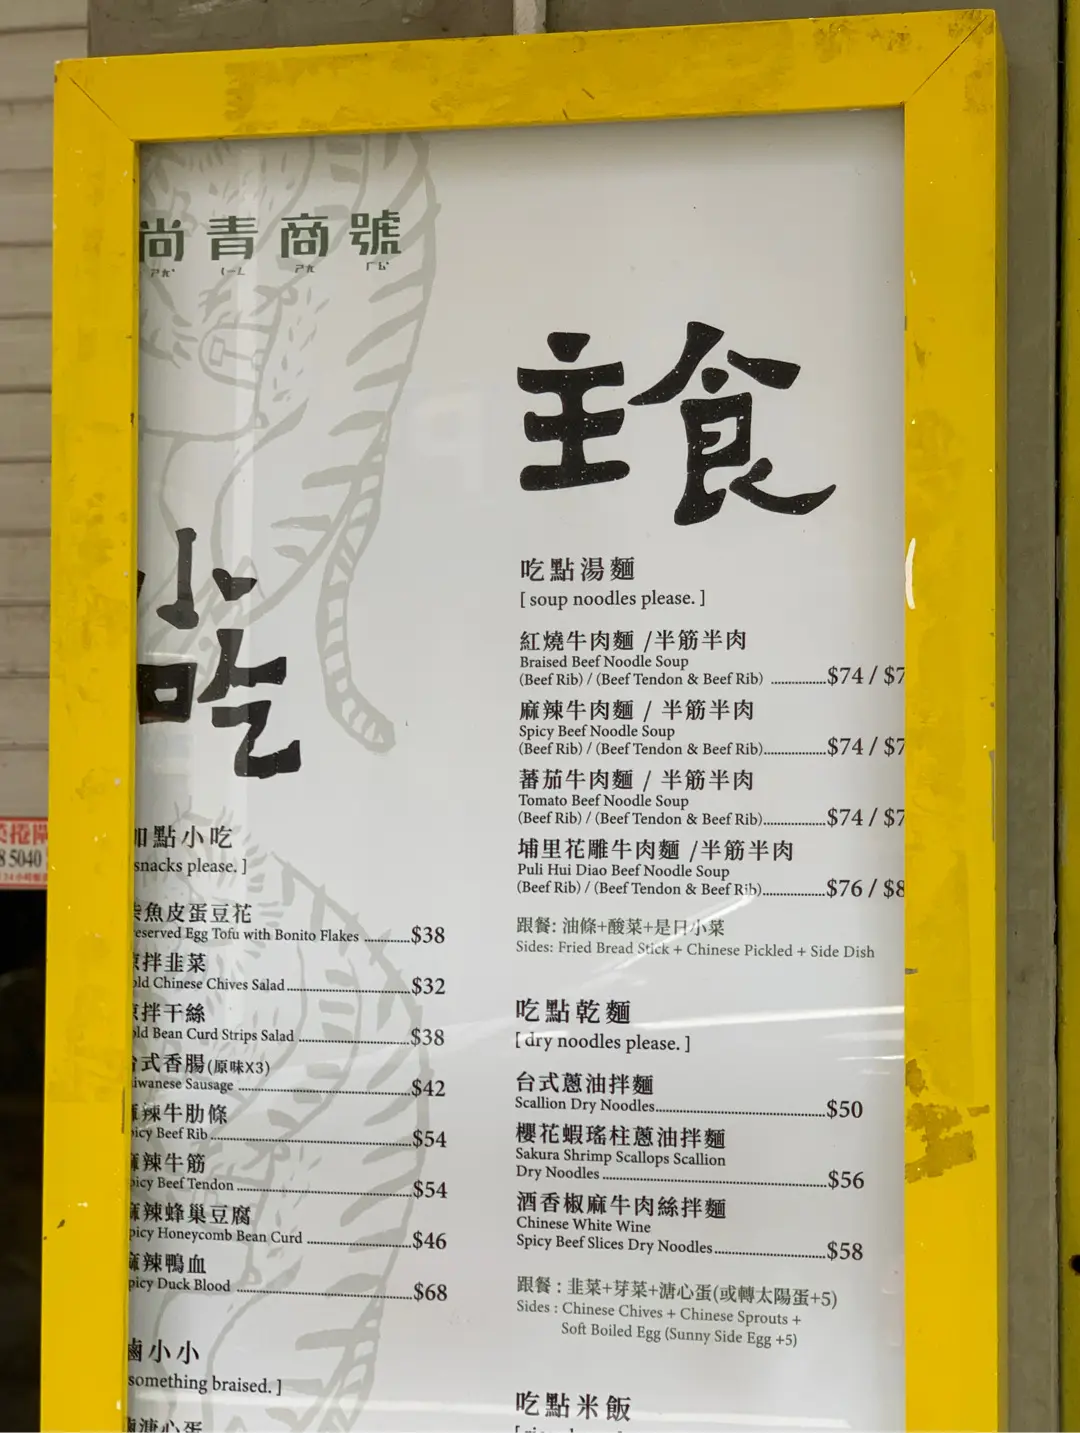 尚青商號
ㄕㄤˋ ㄑㄧㄥ ㄕㄤ ㄏㄠˋ
主食
吃點湯麵
[ soup noodles please. ]
紅燒牛肉麵 /半筋半肉
Braised Beef Noodle Soup
(Beef Rib) / (Beef Tendon & Beef Rib) ..............$74 / $7
麻辣牛肉麵 / 半筋半肉
Spicy Beef Noodle Soup
(Beef Rib) / (Beef Tendon & Beef Rib)................$74 / $7
蕃茄牛肉麵 / 半筋半肉
Tomato Beef Noodle Soup
(Beef Rib) / (Beef Tendon & Beef Rib)................$74 / $7
埔里花雕牛肉麵 /半筋半肉
Puli Hui Diao Beef Noodle Soup
(Beef Rib) / (Beef Tendon & Beef Rib)................$76 / $8
跟餐: 油條+酸菜+是日小菜
Sides: Fried Bread Stick + Chinese Pickled + Side Dish
吃點乾麵
[ dry noodles please. ]
台式蔥油拌麵
Scallion Dry Noodles...........................................$50
櫻花蝦瑤柱蔥油拌麵
Sakura Shrimp Scallops Scallion
Dry Noodles .........................................................$56
酒香椒麻牛肉絲拌麵
Chinese White Wine
Spicy Beef Slices Dry Noodles............................$58
跟餐 : 韭菜+芽菜+溏心蛋(或轉太陽蛋+5)
Sides : Chinese Chives + Chinese Sprouts +
Soft Boiled Egg (Sunny Side Egg +5)
吃點米飯
小吃
加點小吃
snacks please. ]
柴魚皮蛋豆花
eserved Egg Tofu with Bonito Flakes ............$38
涼拌韭菜
old Chinese Chives Salad...............................$32
涼拌干絲
old Bean Curd Strips Salad ............................$38
台式香腸(原味X3)
iwanese Sausage ...........................................$42
麻辣牛肋條
icy Beef Rib..................................................$54
麻辣牛筋
picy Beef Tendon ..........................................$54
麻辣蜂巢豆腐
picy Honeycomb Bean Curd ..........................$46
麻辣鴨血
picy Duck Blood ............................................$68
滷小小
something braised. ]
滷溏心蛋
8 5040